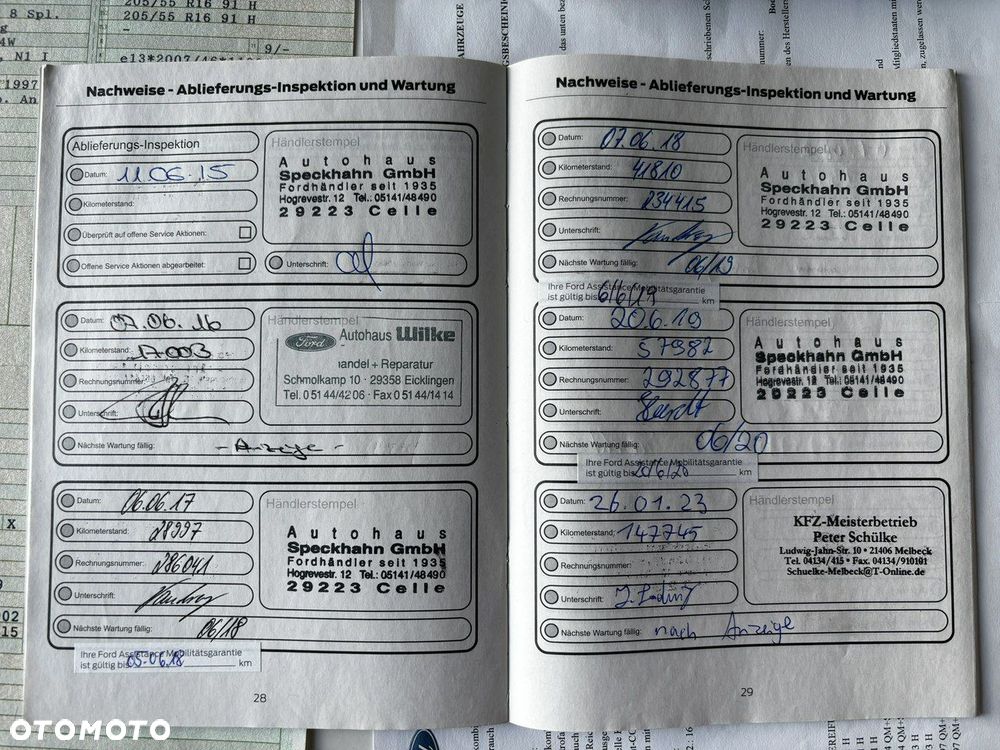 205/55 R16 91 H
8 Spl.
205/55 R16 91 H
4W
N1 I
9/-
e13*2007/46*11
1997
Nachweise - Ablieferungs-Inspektion und Wartung
Ablieferungs-Inspektion
Datum: 11.06.15
Kilometerstand:
Überprüft auf offene Service Aktionen:
Offene Service Aktionen abgearbeitet:
Händlerstempel
Autohaus
Speckhahn GmbH
Fordhändler seit 1935
Hogrevestr. 12 Tel.: 05141/48490
29223 Celle
Unterschrift:
Datum: 07.06.16
Kilometerstand: 17003
Rechnungsnummer:
Unterschrift:
Nächste Wartung fällig: - Anzeige -
Händlerstempel
Ford
Autohaus Wilke
handel + Reparatur
Schmolkamp 10 · 29358 Eicklingen
Tel. 0 51 44/42 06 · Fax 0 51 44/14 14
Datum: 06.06.17
Kilometerstand: 28997
Rechnungsnummer: 286041
Unterschrift:
Nächste Wartung fällig: 06/18
Händlerstempel
Autohaus
Speckhahn GmbH
Fordhändler seit 1935
Hogrevestr. 12 Tel.: 05141/48490
29223 Celle
Ihre Ford Assistance Mobilitätsgarantie
ist gültig bis 05.06.18 km
28
Nachweise - Ablieferungs-Inspektion und Wartung
Datum: 07.06.18
Kilometerstand: 41810
Rechnungsnummer: 234415
Unterschrift:
Nächste Wartung fällig: 06/19
Händlerstempel
Autohaus
Speckhahn GmbH
Fordhändler seit 1935
Hogrevestr. 12 Tel.: 05141/48490
29223 Celle
Ihre Ford Assistance Mobilitätsgarantie
ist gültig bis 6/6/19 km
Datum: 20.6.19
Kilometerstand: 57982
Rechnungsnummer: 292877
Unterschrift:
Nächste Wartung fällig: 06/20
Händlerstempel
Autohaus
Speckhahn GmbH
Fordhändler seit 1935
Hogrevestr. 12 Tel.: 05141/48490
29223 Celle
Ihre Ford Assistance Mobilitätsgarantie
ist gültig bis 20/6/20 km
Datum: 26.01.23
Kilometerstand: 147745
Rechnungsnummer:
Unterschrift:
Nächste Wartung fällig: nach Anzeige
Händlerstempel
KFZ-Meisterbetrieb
Peter Schülke
Ludwig-Jahn-Str. 10 • 21406 Melbeck
Tel. 04134/415 • Fax. 04134/910101
Schuelke-Melbeck@T-Online.de
29
OTOMOTO